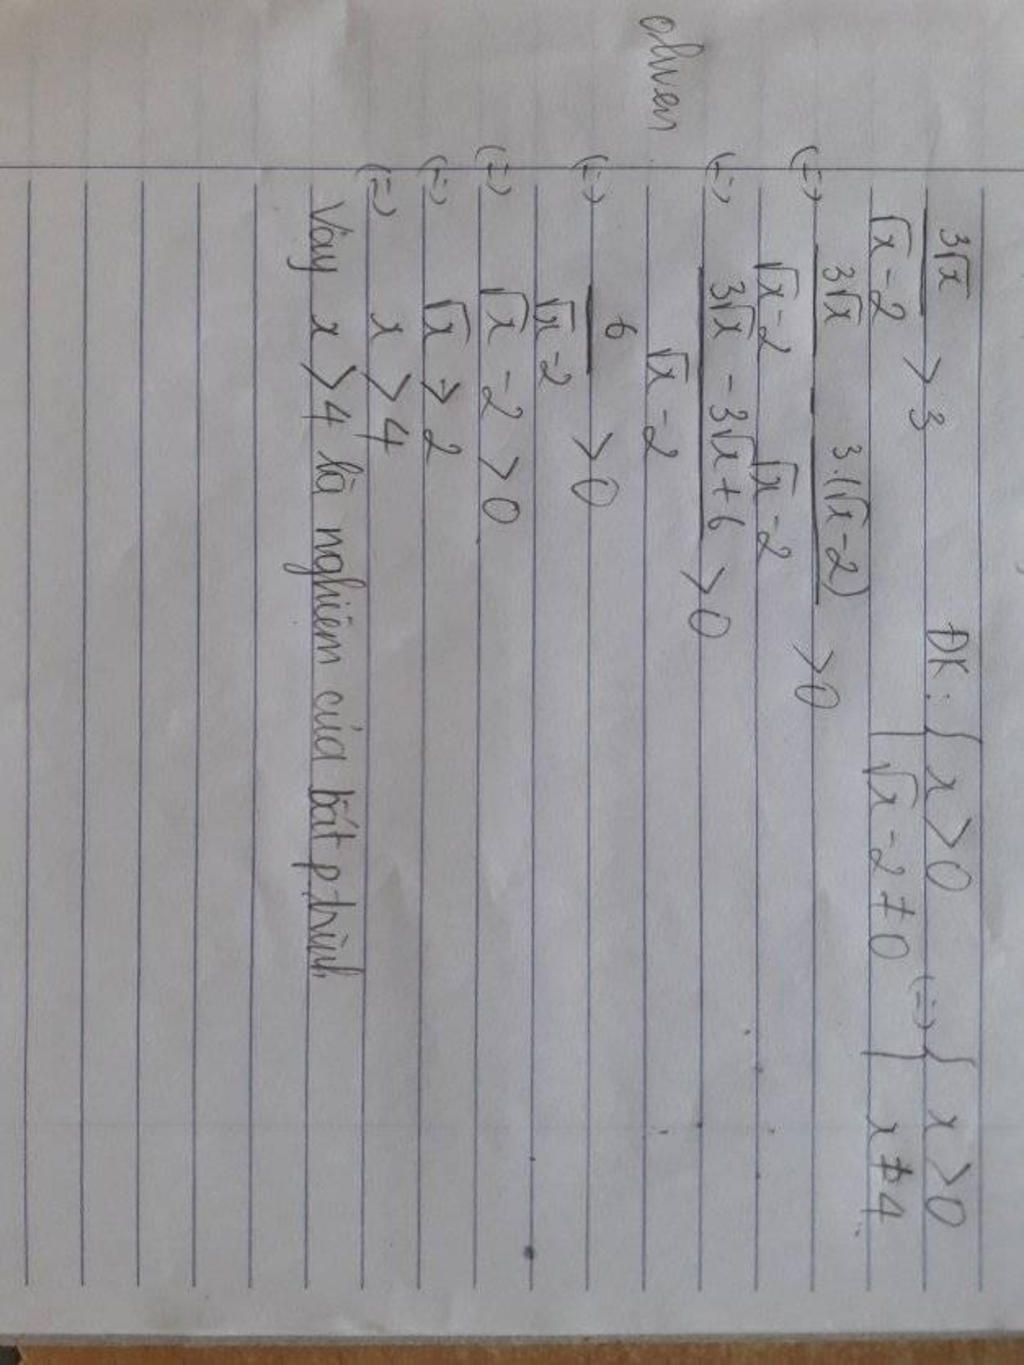 3√x / (√x - 2) > 3 ĐK: { x > 0 ; √x - 2 ≠ 0 (=) { x > 0 ; x ≠ 4
(=) 3√x / (√x - 2) - 3.(√x - 2) / (√x - 2) > 0
(=) (3√x - 3√x + 6) / (√x - 2) > 0
(=) 6 / (√x - 2) > 0
(=) √x - 2 > 0
(=) √x > 2
(=) x > 4
Vậy x > 4 là nghiệm của bất ptrình